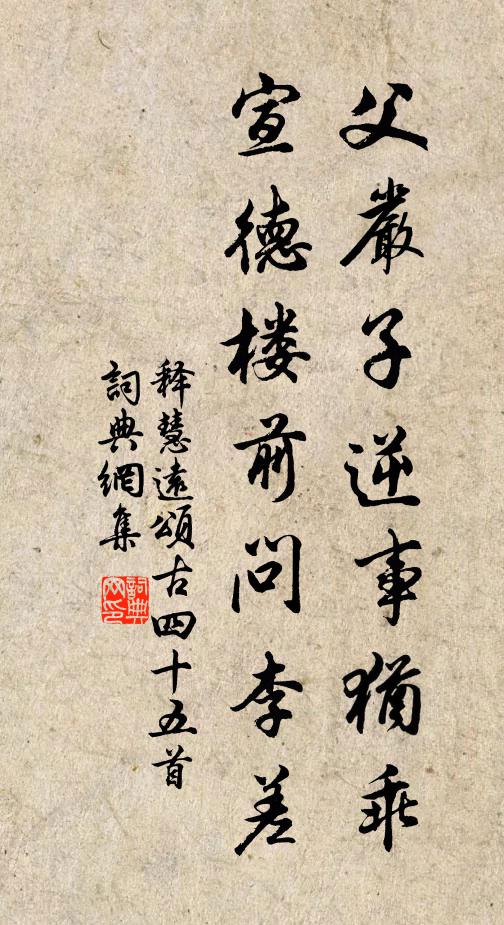 父嚴子逆事猶乖
宣德楼前問李差
释慧遠頌古四十五首
詞典網集
詞典
网印